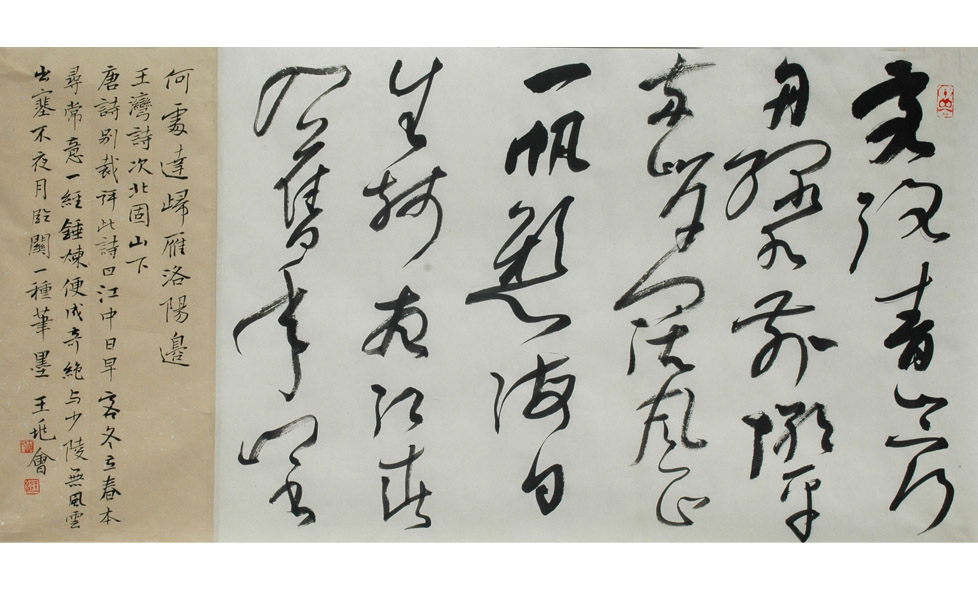 客路青山下行
舟綠水前潮平
兩岸闊風正
一帆懸海日
生殘夜江春
入舊年鄉書
何處達歸雁洛陽邊
王灣詩次北固山下
唐詩別裁評此詩曰江中日早客冬立春本
尋常意一經錘煉便成奇絕与少陵無風雲
出塞不夜月臨關一種筆墨 王